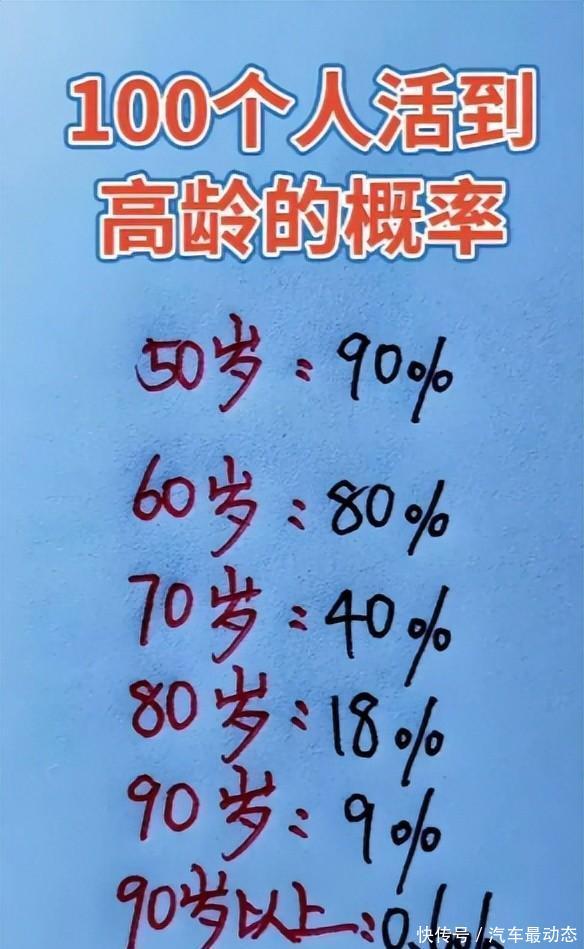 100个人活到
高龄的概率
50岁:90%
60岁:80%
70岁:40%
80岁:18%
90岁:9%
90岁以上:
快传号/汽车最动态